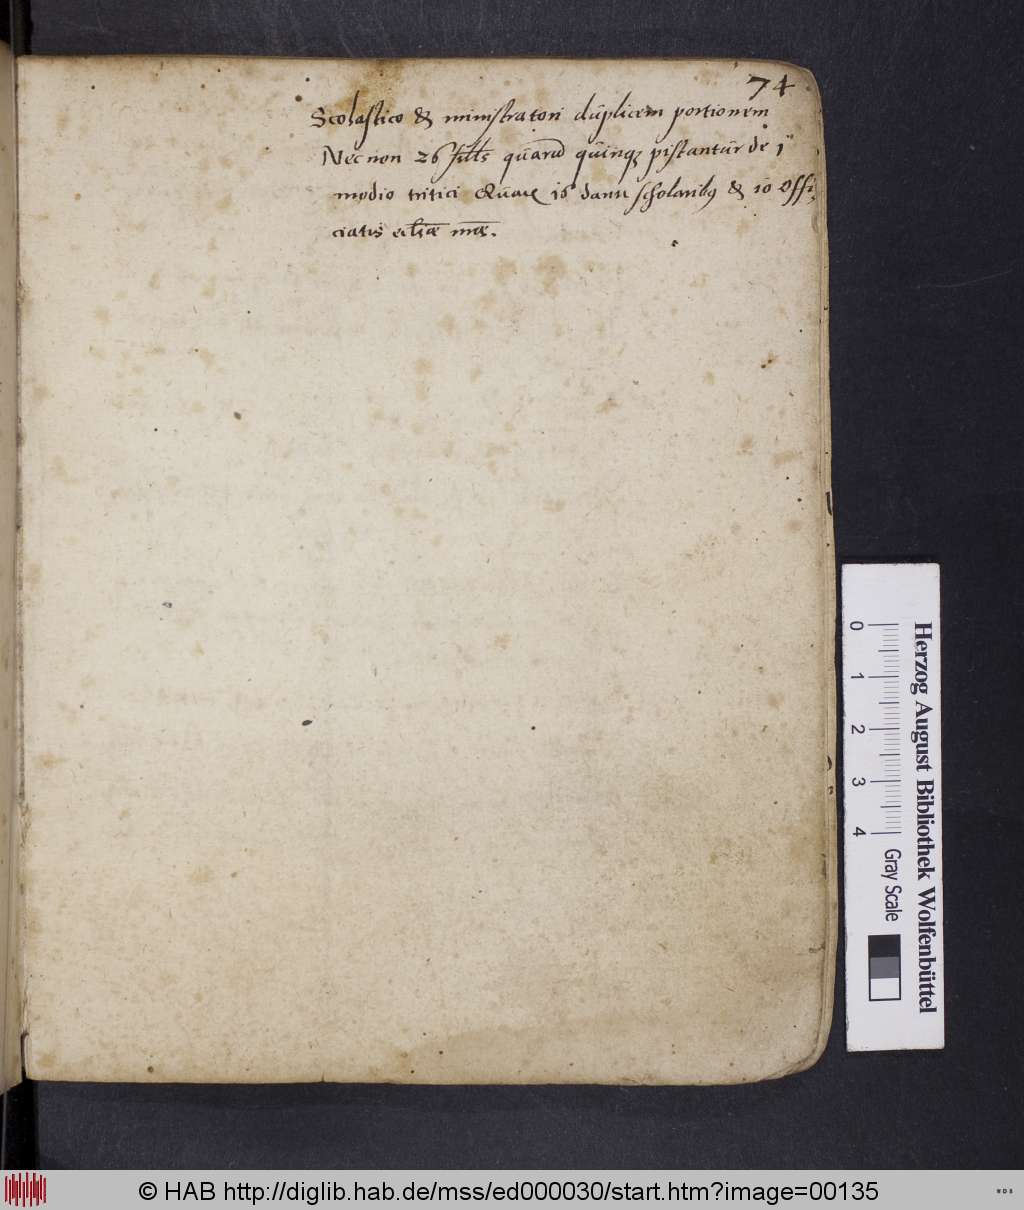 74
Scolastico & ministratori duplicem portionem
Necnon 26 quarū quinqz pistantur de j
modio tritici Quare is dantr scholaribus & 10 offi
ciatis eccliæ
0 1 2 3 4
Gray Scale
Herzog August Bibliothek Wolfenbüttel
© HAB http://diglib.hab.de/mss/ed000030/start.htm?image=00135